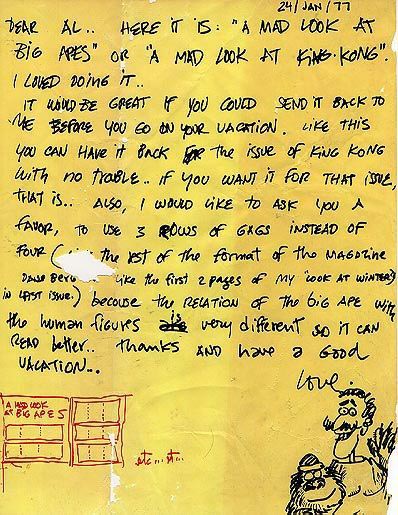 24/JAN/77
DEAR AL.. HERE IT IS: "A MAD LOOK AT
BIG APES" OR "A MAD LOOK AT KING-KONG".
I LOVED DOING IT..
IT WOULD BE GREAT IF YOU COULD SEND IT BACK TO
ME BEFORE YOU GO ON YOUR VACATION. LIKE THIS
YOU CAN HAVE IT BACK FOR the ISSUE OF KING KONG
WITH NO TROUBLE.. IF YOU WANT IT FOR THAT ISSUE,
THAT IS.. ALSO, I WOULD LIKE TO ASK YOU A
FAVOR, TO USE 3 ROWS OF GAGS INSTEAD OF
FOUR ( the REST OF the FORMAT OF the MAGAZINE
DAVE BERG like the first 2 pages OF MY "LOOK AT WINTER"
IN LAST ISSUE.) because the RELATION OF the BIG APE with
the human figures is very different so it can
READ better.. thanks AND have a Good
VACATION...
Love.
A MAD LOOK
AT BIG APES
etc...